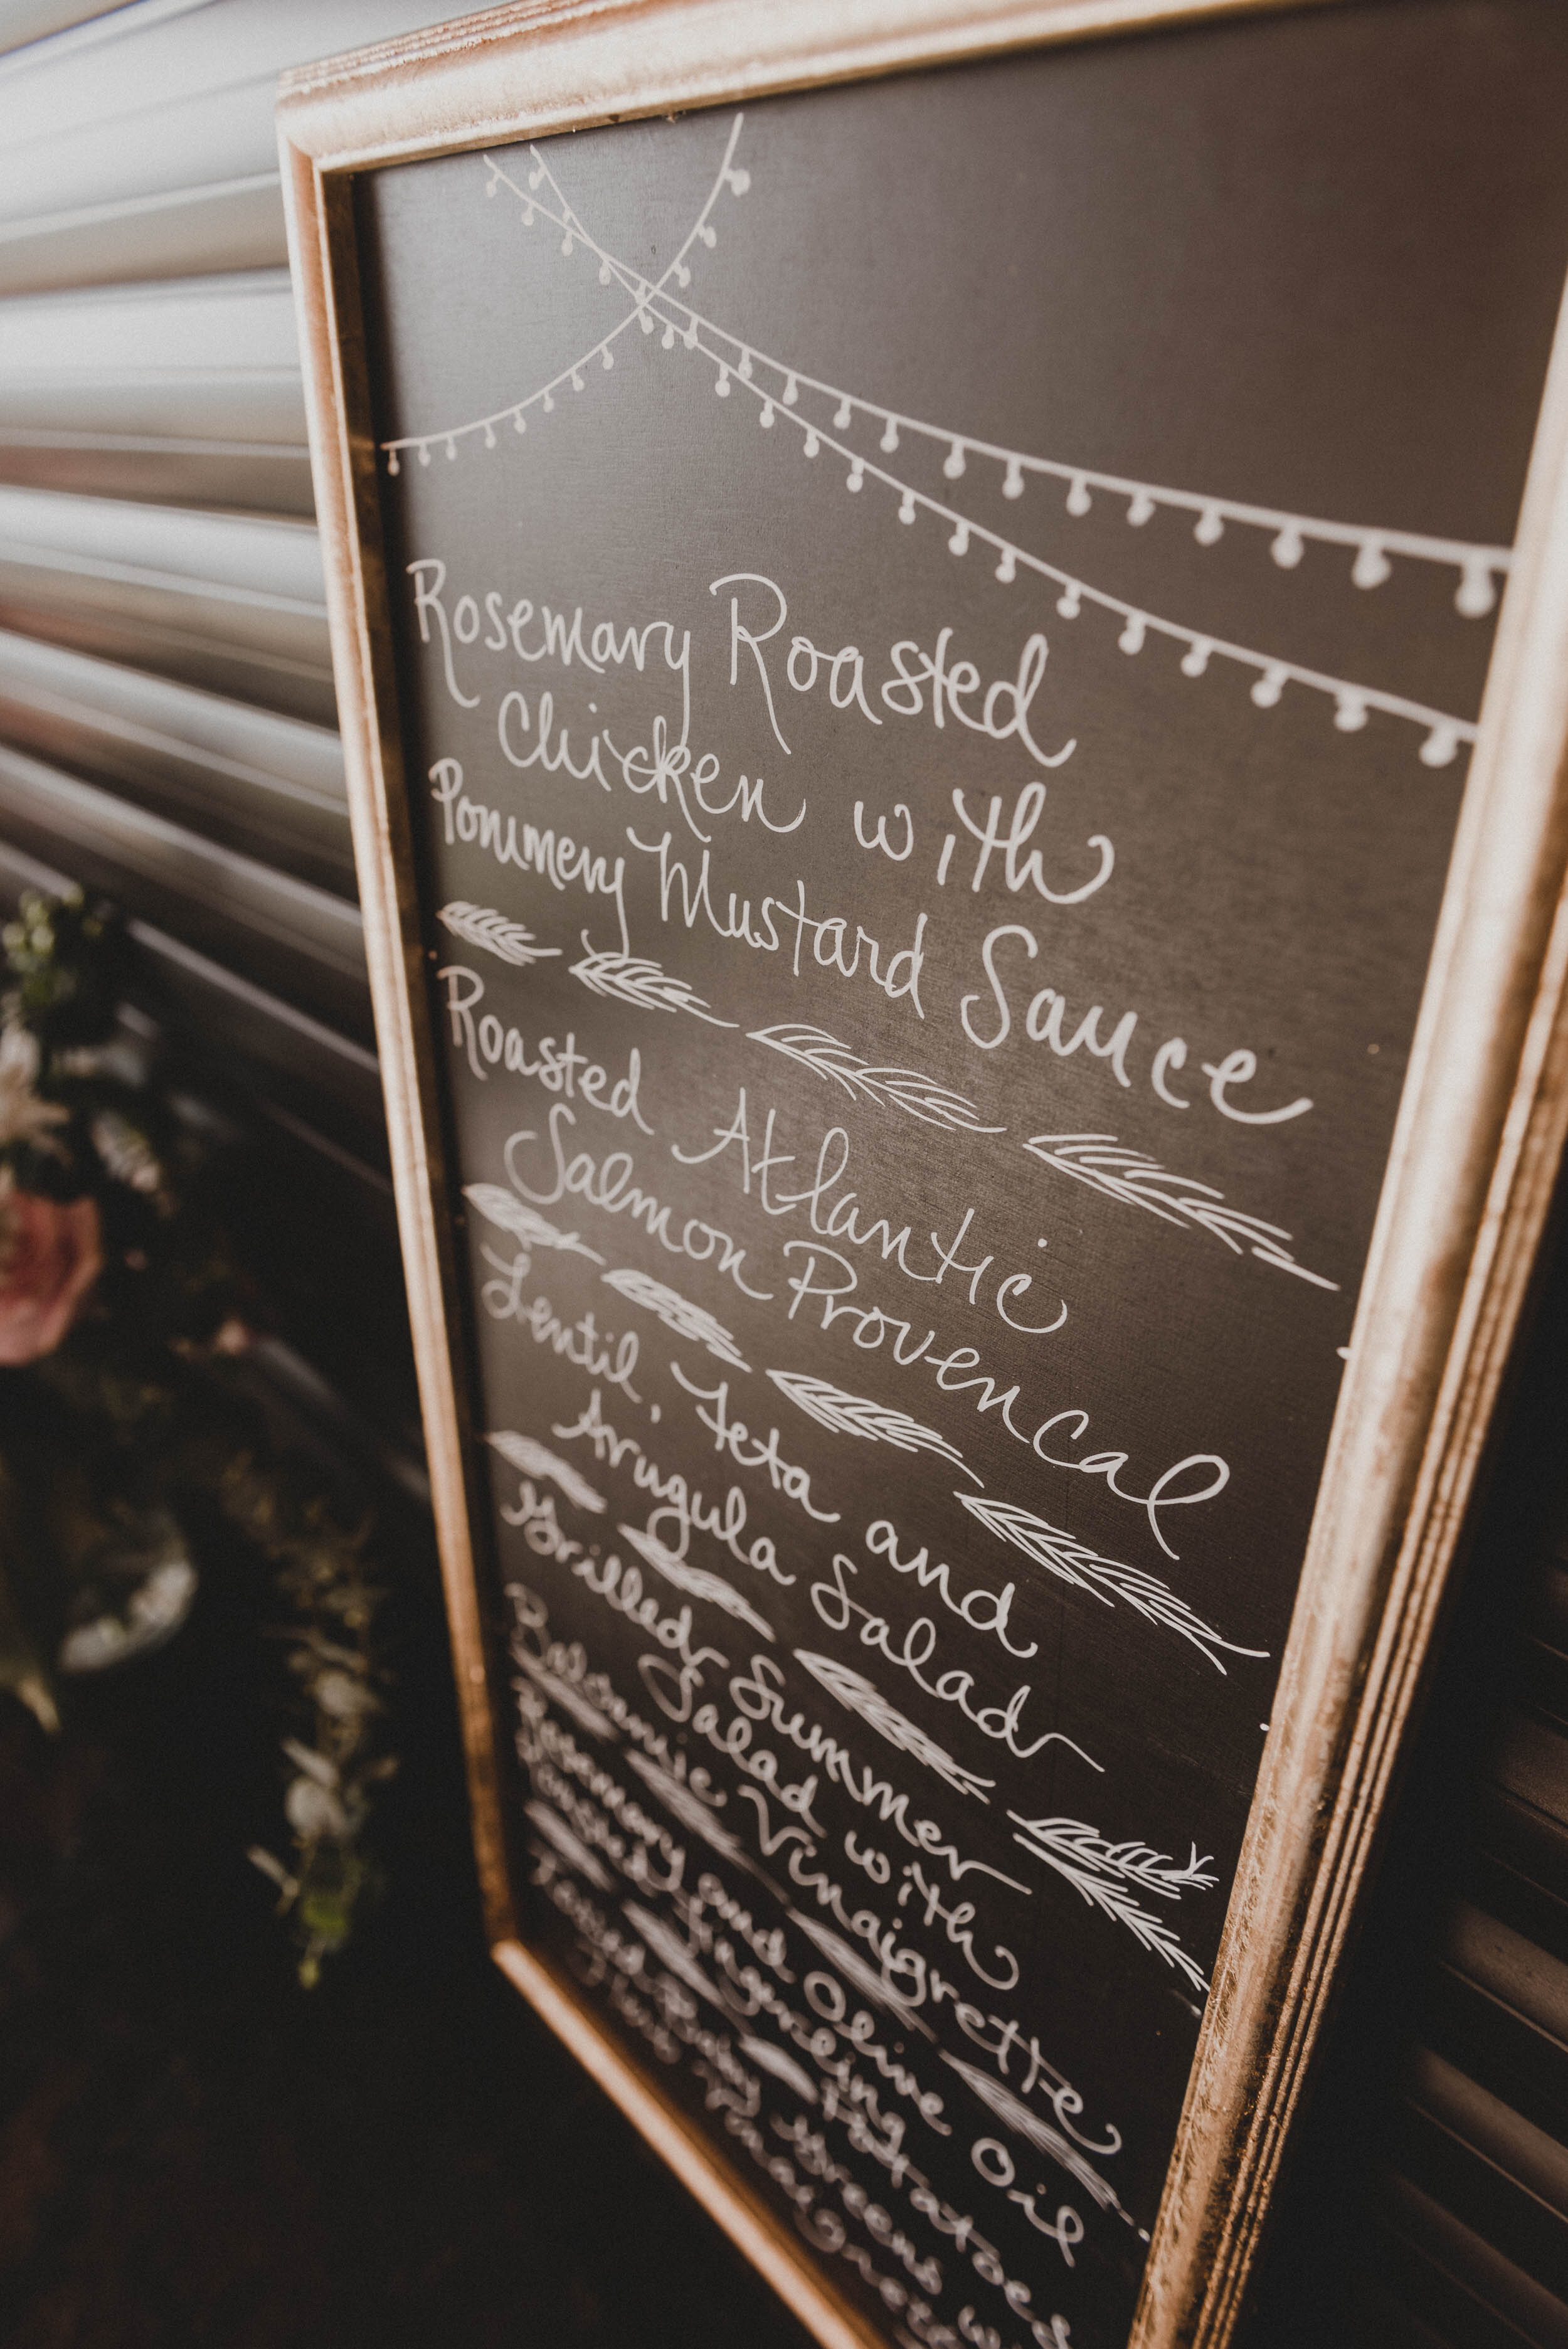 Rosemary Roasted
Chicken with
Pommery Mustard Sauce
Roasted Atlantic
Salmon Provencal
Lentil, Feta and
Arugula Salad
Grilled Summer
Salad with
Balsamic Vinaigrette
Rosemary and Olive Oil
Roasted Fingerling Potatoes
Baby Greens